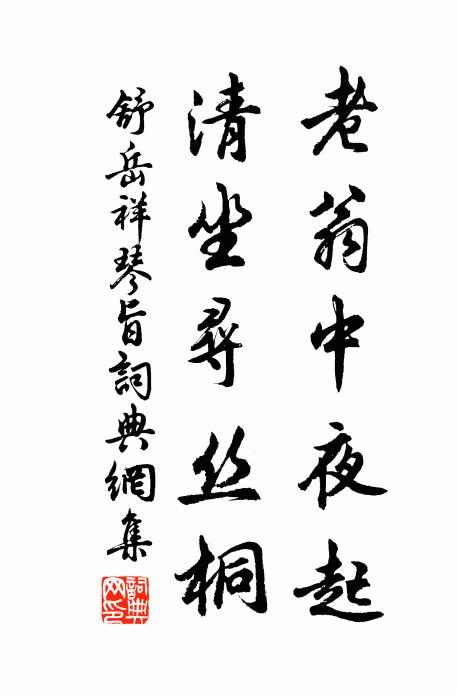 老翁中夜起
清坐尋丝桐
舒岳祥琴旨詞典網集
詞典网印